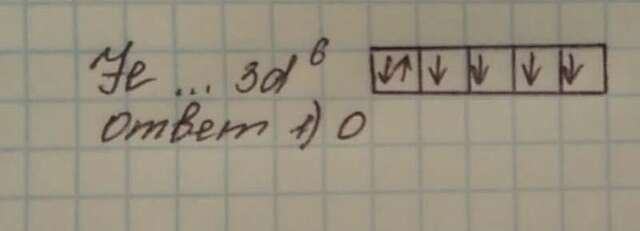 Fe ... 3d⁶ ↓↑ ↓ ↓ ↓ ↓
Ответ 1) 0